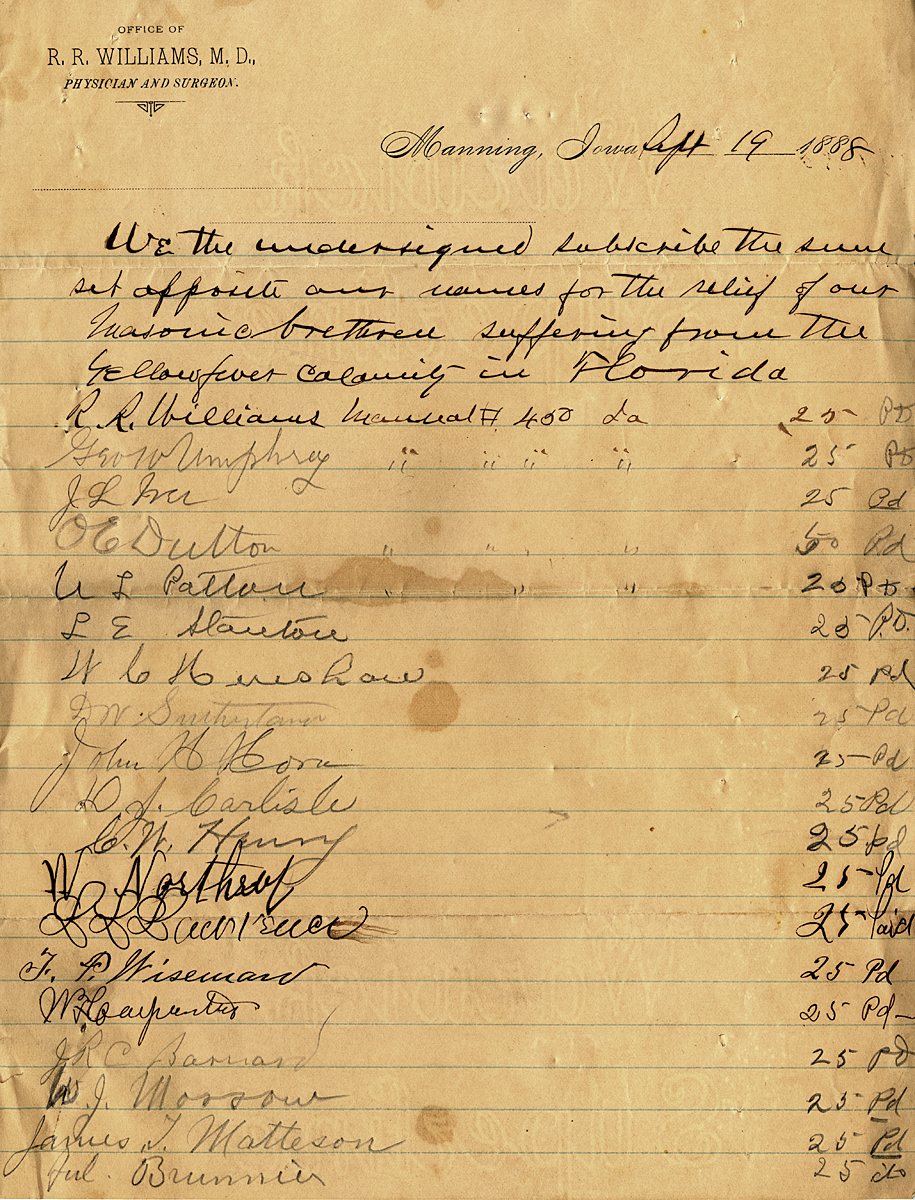 OFFICE OF
R. R. WILLIAMS, M. D.,
PHYSICIAN AND SURGEON.
Manning, Iowa Sept 19 1888
We the undersigned subscribe the sum
set opposite our names for the relief of our
Masonic brethren suffering from the
Yellow fever calamity in Florida
R. R. Williams Manual # 450 Ia 25 Pd
Geo W Umphrey " " " " 25 Pd
J L 25 Pd
O E Dutton " " " " 50 Pd
U L Patton " " " " 25 Pd
L E Stanton 25 P.D.
W C Henshaw 25 pd
D W Sutherland 25 Pd
John H Horn 25 Pd
D J. Carlisle 25 Pd
C. W. Henry 25 pd
W Northrop 25 Pd
L L Lawrence 25 Paid
F. P. Wiseman 25 Pd
W H Carpenter 25 Pd
J R C Barnard 25 PD
W. J. Morrow 25 Pd
James T. Matteson 25 Pd
Jul. Brunnier 25 do